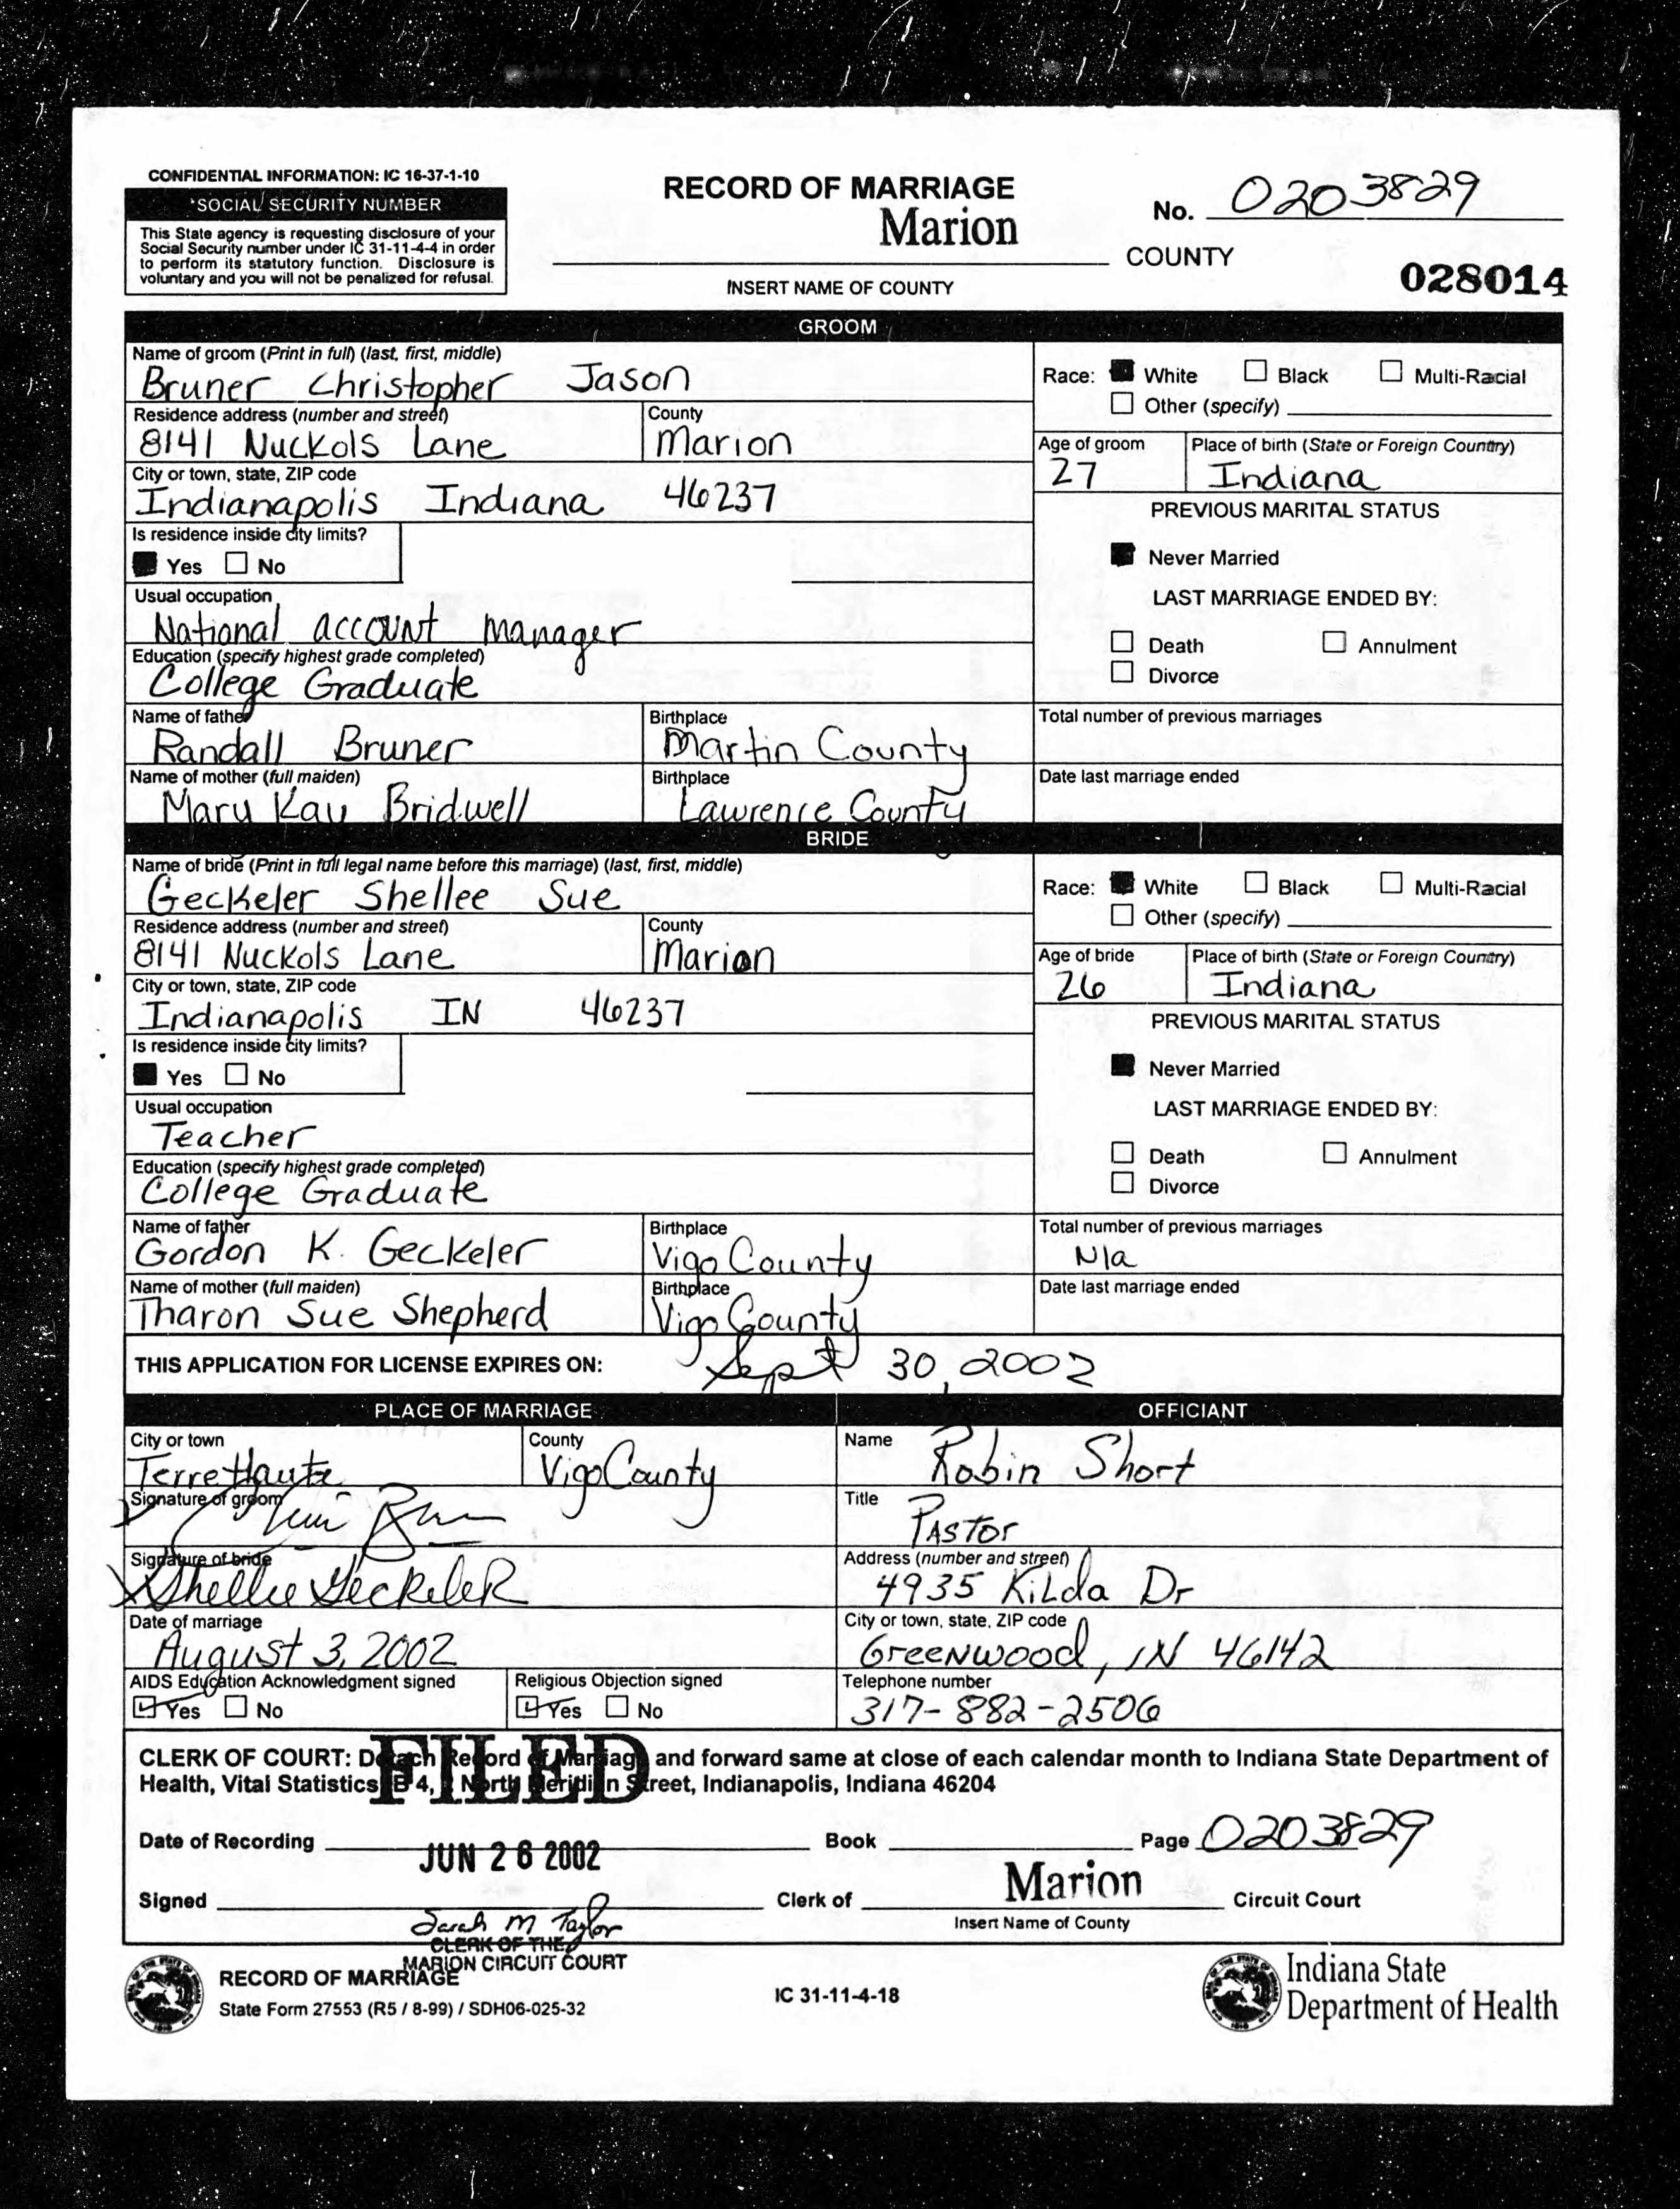 CONFIDENTIAL INFORMATION: IC 16-37-1-10
*SOCIAL SECURITY NUMBER
This State agency is requesting disclosure of your
Social Security number under IC 31-11-4-4 in order
to perform its statutory function. Disclosure is
voluntary and you will not be penalized for refusal.
RECORD OF MARRIAGE
Marion
COUNTY
INSERT NAME OF COUNTY
No. 0203829
028014
GROOM
Name of groom (Print in full) (last, first, middle)
Bruner Christopher Jason
Race: White Black Multi-Racial
Other (specify)
Residence address (number and street) County
8141 Nuckols Lane Marion
Age of groom Place of birth (State or Foreign Country)
27 Indiana
City or town, state, ZIP code
Indianapolis Indiana 46237
PREVIOUS MARITAL STATUS
Is residence inside city limits?
Yes No
Never Married
Usual occupation
National account manager
LAST MARRIAGE ENDED BY:
Death Annulment
Divorce
Education (specify highest grade completed)
College Graduate
Name of father Birthplace
Randall Bruner Martin County
Total number of previous marriages
Name of mother (full maiden) Birthplace
Mary Kay Bridwell Lawrence County
Date last marriage ended
BRIDE
Name of bride (Print in full legal name before this marriage) (last, first, middle)
Geckeler Shellee Sue
Race: White Black Multi-Racial
Other (specify)
Residence address (number and street) County
8141 Nuckols Lane Marion
Age of bride Place of birth (State or Foreign Country)
26 Indiana
City or town, state, ZIP code
Indianapolis IN 46237
PREVIOUS MARITAL STATUS
Is residence inside city limits?
Yes No
Never Married
Usual occupation
Teacher
LAST MARRIAGE ENDED BY:
Death Annulment
Divorce
Education (specify highest grade completed)
College Graduate
Name of father Birthplace
Gordon K. Geckeler Vigo County
Total number of previous marriages
N/a
Name of mother (full maiden) Birthplace
Tharon Sue Shepherd Vigo County
Date last marriage ended
THIS APPLICATION FOR LICENSE EXPIRES ON: Sept 30, 2002
PLACE OF MARRIAGE
City or town County
Terre Haute Vigo County
Signature of groom
Signature of bride
X Shellee Geckeler
Date of marriage
August 3, 2002
AIDS Education Acknowledgment signed Religious Objection signed
Yes No Yes No
OFFICIANT
Name Robin Short
Title
Pastor
Address (number and street)
4935 Kilda Dr
City or town, state, ZIP code
Greenwood, IN 46142
Telephone number
317-882-2506
CLERK OF COURT: Detach Record of Marriage and forward same at close of each calendar month to Indiana State Department of
Health, Vital Statistics, B-4, 2 North Meridian Street, Indianapolis, Indiana 46204
FILED
Date of Recording JUN 26 2002 Book Page 0203829
Signed Sarah M Taylor Clerk of Marion Circuit Court
Insert Name of County
CLERK OF THE
MARION CIRCUIT COURT
RECORD OF MARRIAGE
State Form 27553 (R5 / 8-99) / SDH06-025-32
IC 31-11-4-18
Indiana State
Department of Health